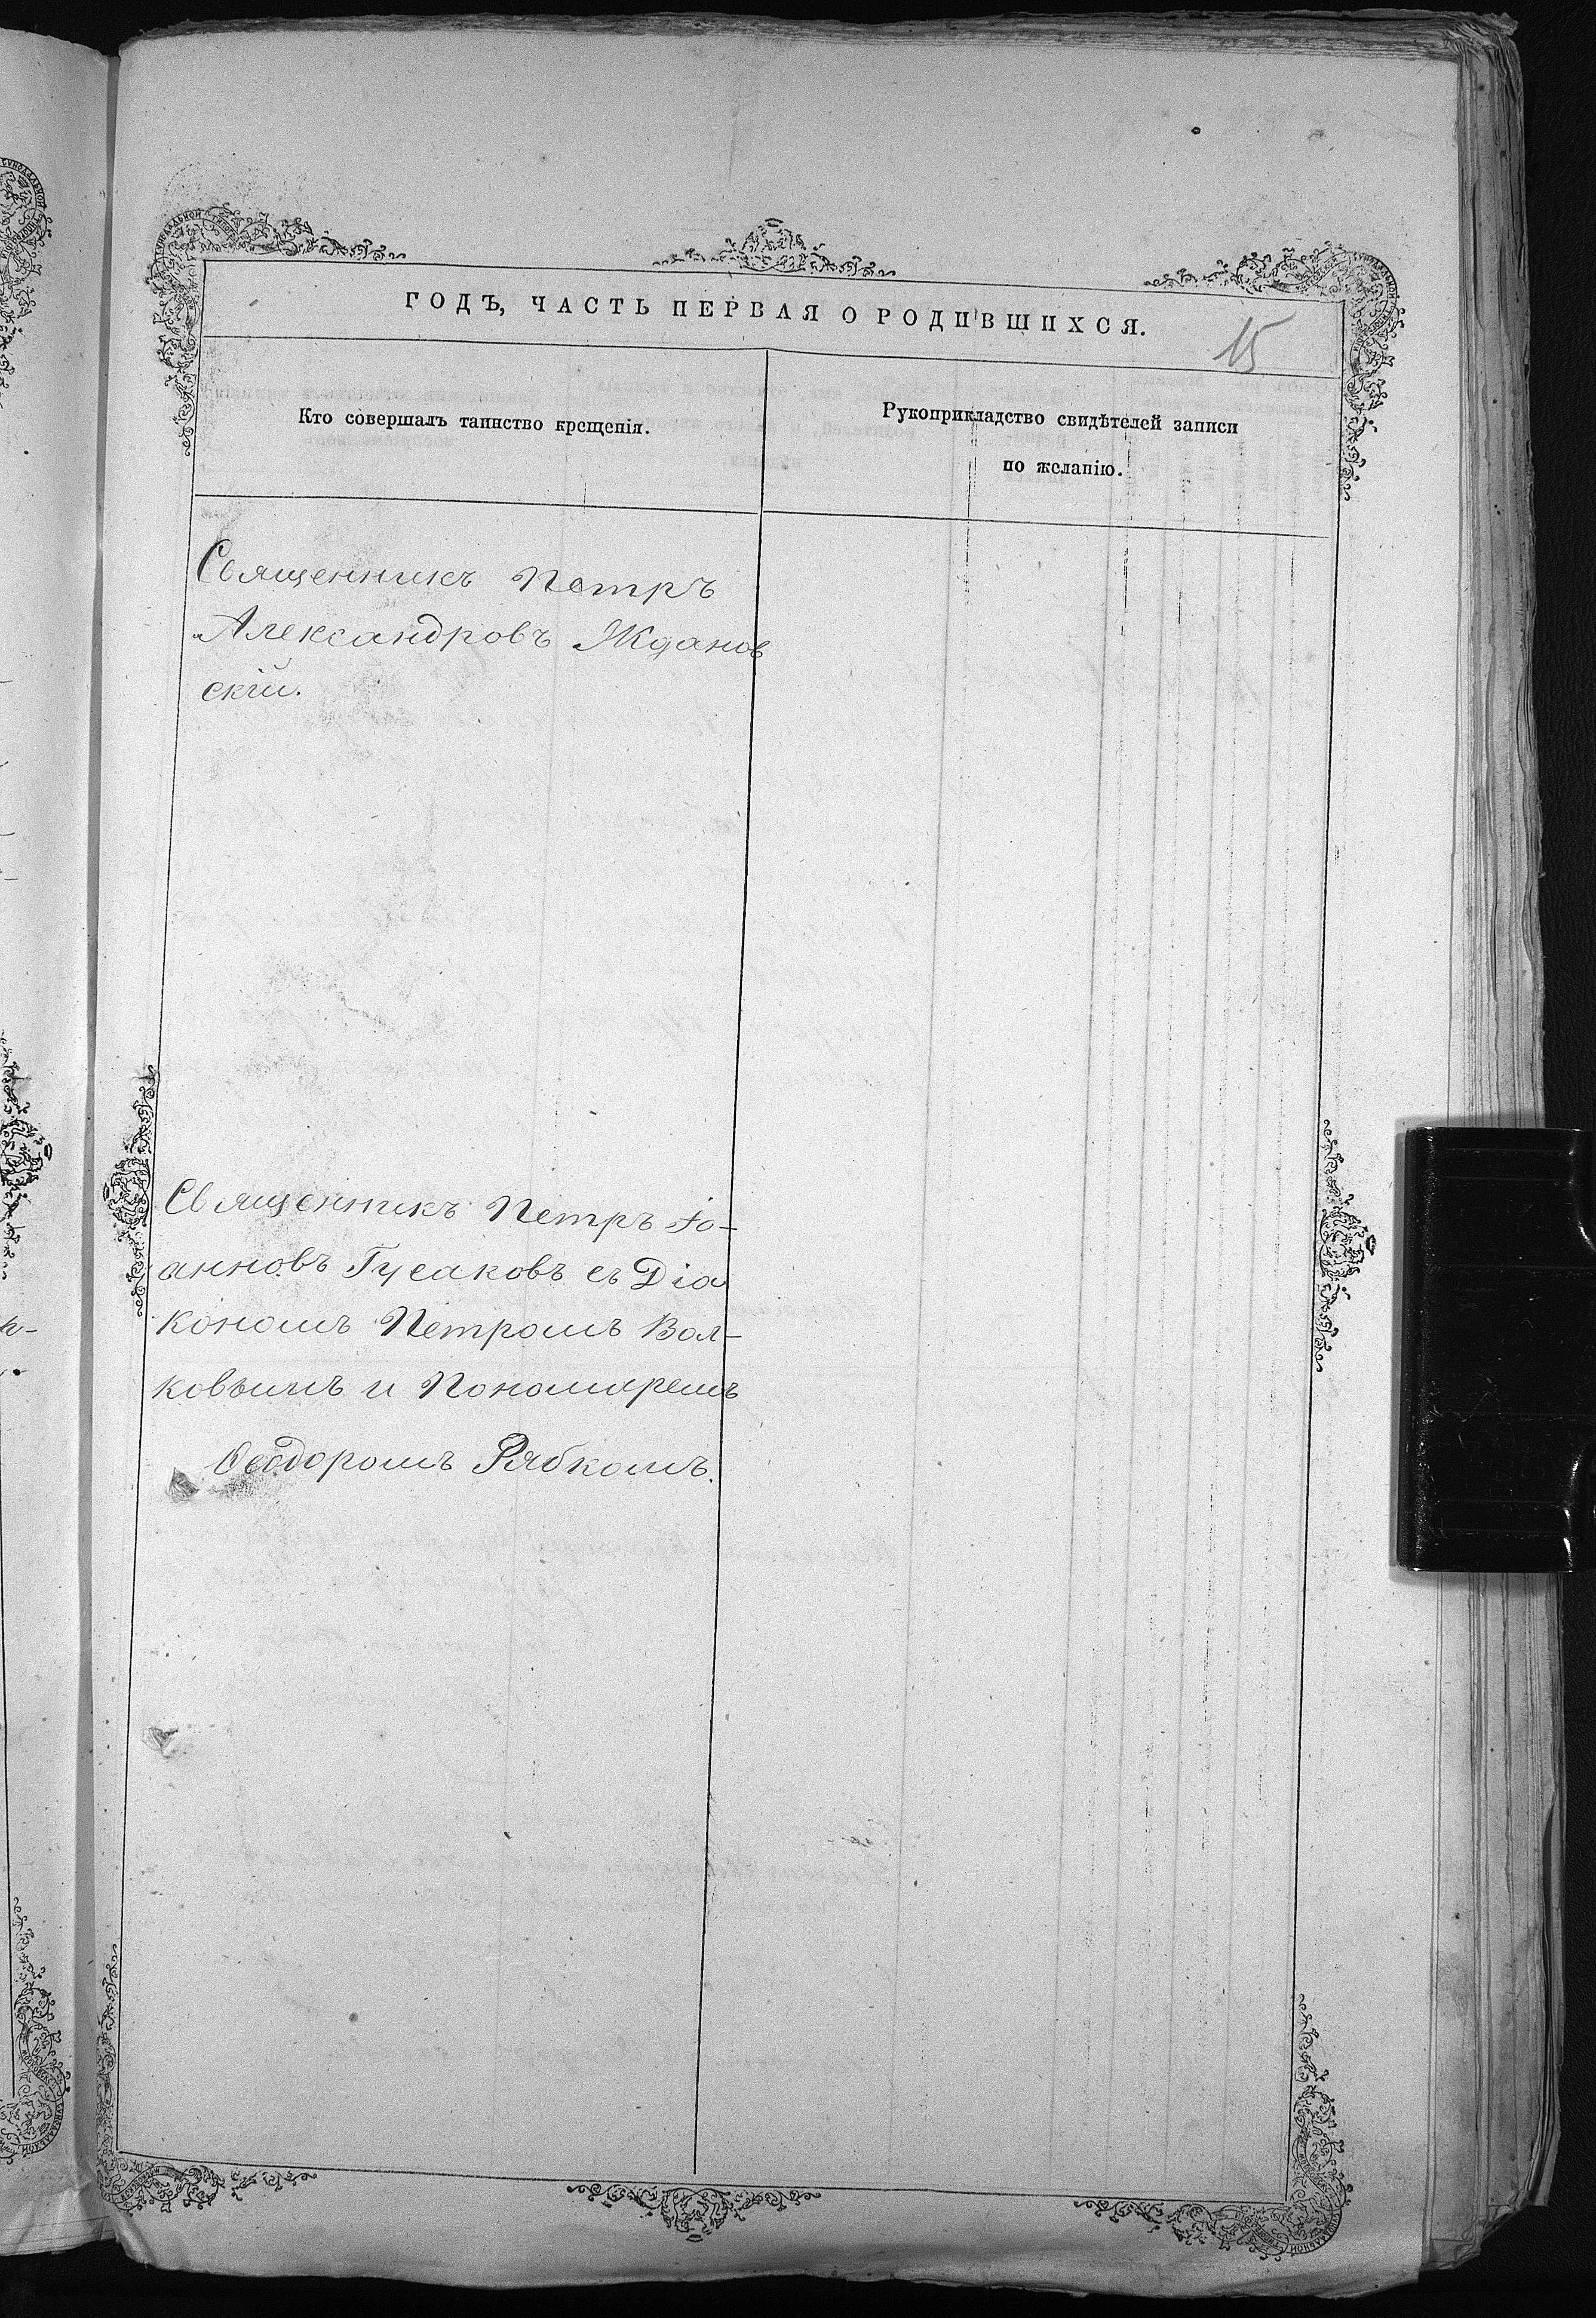 ГОДЪ, ЧАСТЬ ПЕРВАЯ О РОДИВШИХСЯ.
15
Кто совершалъ таинство крещенія.
Рукоприкладство свидѣтелей записи
по желанію.
Священникъ Петръ
Александровъ Жданов
скій.
Священникъ Петръ Іо-
анновъ Гусаковъ съ Діа
кономъ Петромъ Вол-
ковымъ и Пономаремъ
Ѳеодоромъ Рябкомъ.